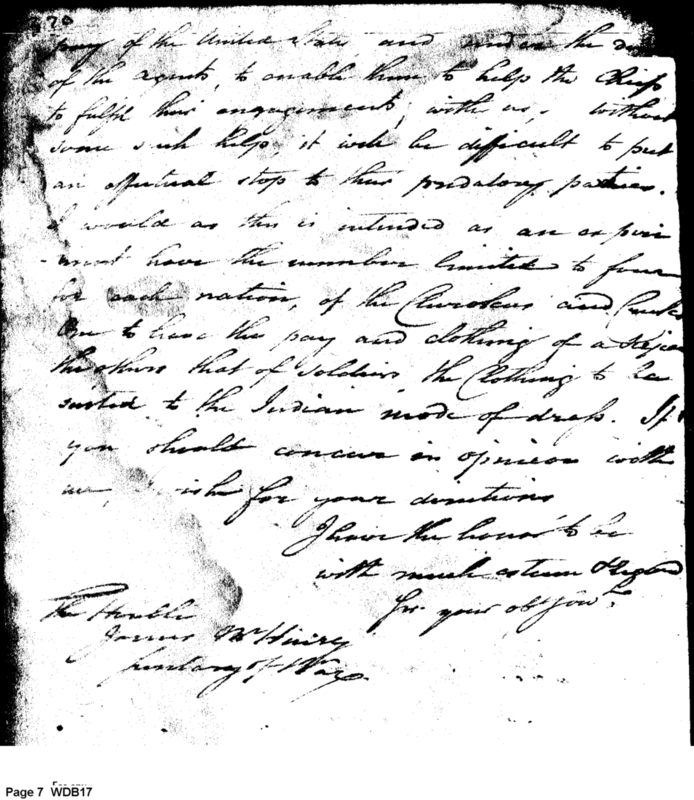 370
pay of the United States, and under the
of the agents, to enable them to help the Chiefs
to fulfil their engagements, with us, without
some such help, it will be difficult to put
an effectual stop to their predatory parties.
I would as this is intended as an experi
-ment have the number limited to four
for each nation, of the Cherokees and Creeks
One to have the pay and clothing of a
the others that of soldiers, the Clothing to be
suited to the Indian mode of dress. If
you should concur in opinion with
me, I wish for your directions
I have the honor to be
with much esteem & regard
Sir your obt
The Honble
James McHenry
Secretary of War
Page 7 WDB17